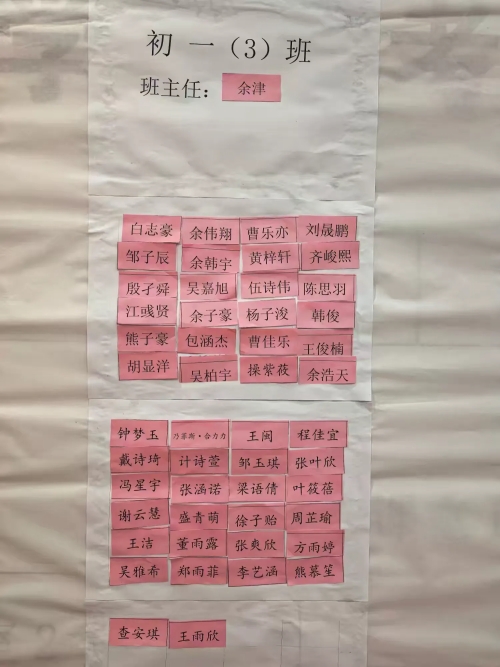 初一（3）班
班主任： 余津
白志豪 余伟翔 曹乐亦 刘晟鹏
邹子辰 余韩宇 黄梓轩 齐峻熙
殷孑舜 吴嘉旭 伍诗伟 陈思羽
江彧贤 余子豪 杨子浚 韩俊
熊子豪 包涵杰 曹佳乐 王俊楠
胡显洋 吴柏宇 操紫莜 余浩天
钟梦玉 乃菲斯·合力力 王闽 程佳宜
戴诗琦 计诗萱 邹玉琪 张叶欣
冯星宇 张涵诺 梁语倩 叶筱蓓
谢云慧 盛青萌 徐子贻 周芷瑜
王洁 董雨露 张爽欣 方雨婷
吴雅希 郑雨菲 李艺涵 熊慕笙
查安琪 王雨欣